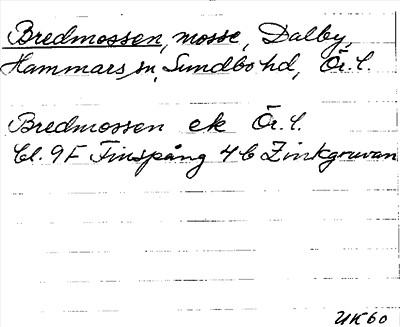 Bredmossen, mosse, Dalby,
Hammars sn, Sundbo hd, Ör. l.
Bredmossen ek Ör. l.
bl. 9F Finspång 4b Zinkgruvan
UK60